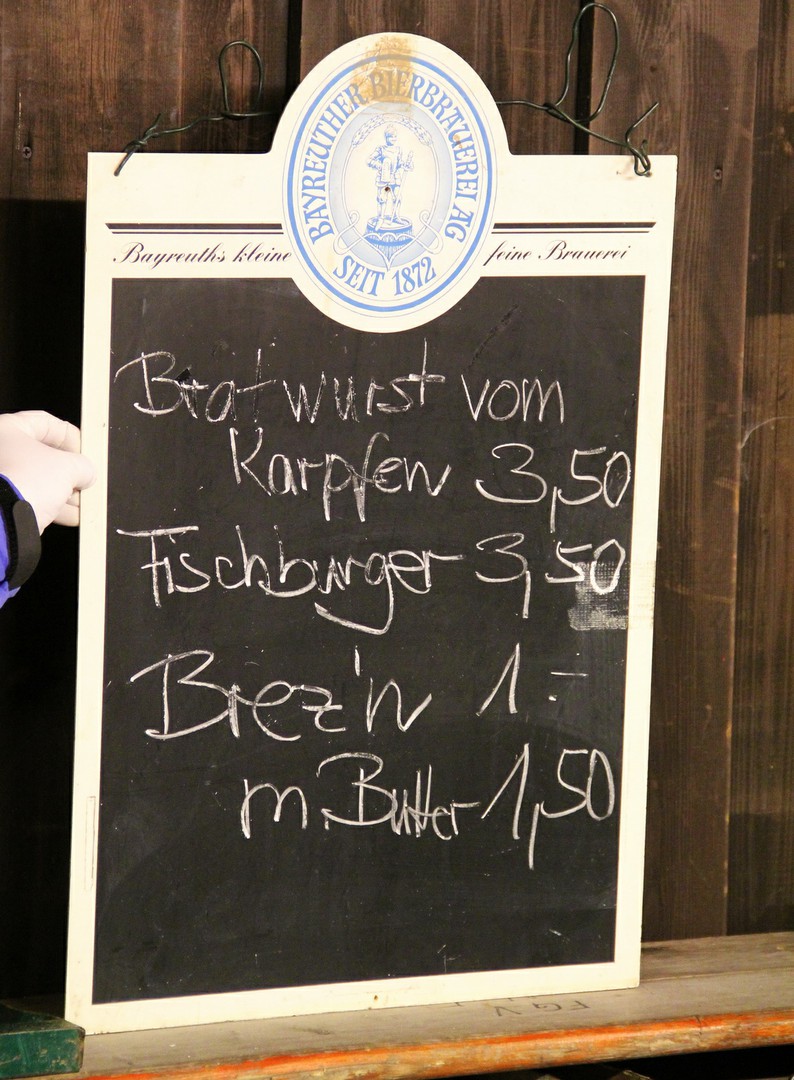 BAYREUTHER BIERBRAUEREI AG
SEIT 1872
Bayreuths kleine feine Brauerei
Bratwurst vom
Karpfen 3,50
Fischburger 3,50
Brez'n 1.-
m. Butter 1,50